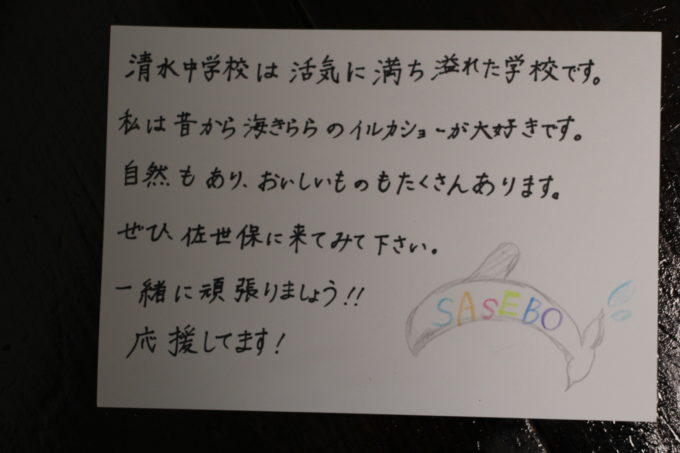 清水中学校は活気に満ち溢れた学校です。
私は昔から海きららのイルカショーが大好きです。
自然もあり、おいしいものもたくさんあります。
ぜひ、佐世保に来てみて下さい。
一緒に頑張りましょう!!
応援してます!
SASEBO